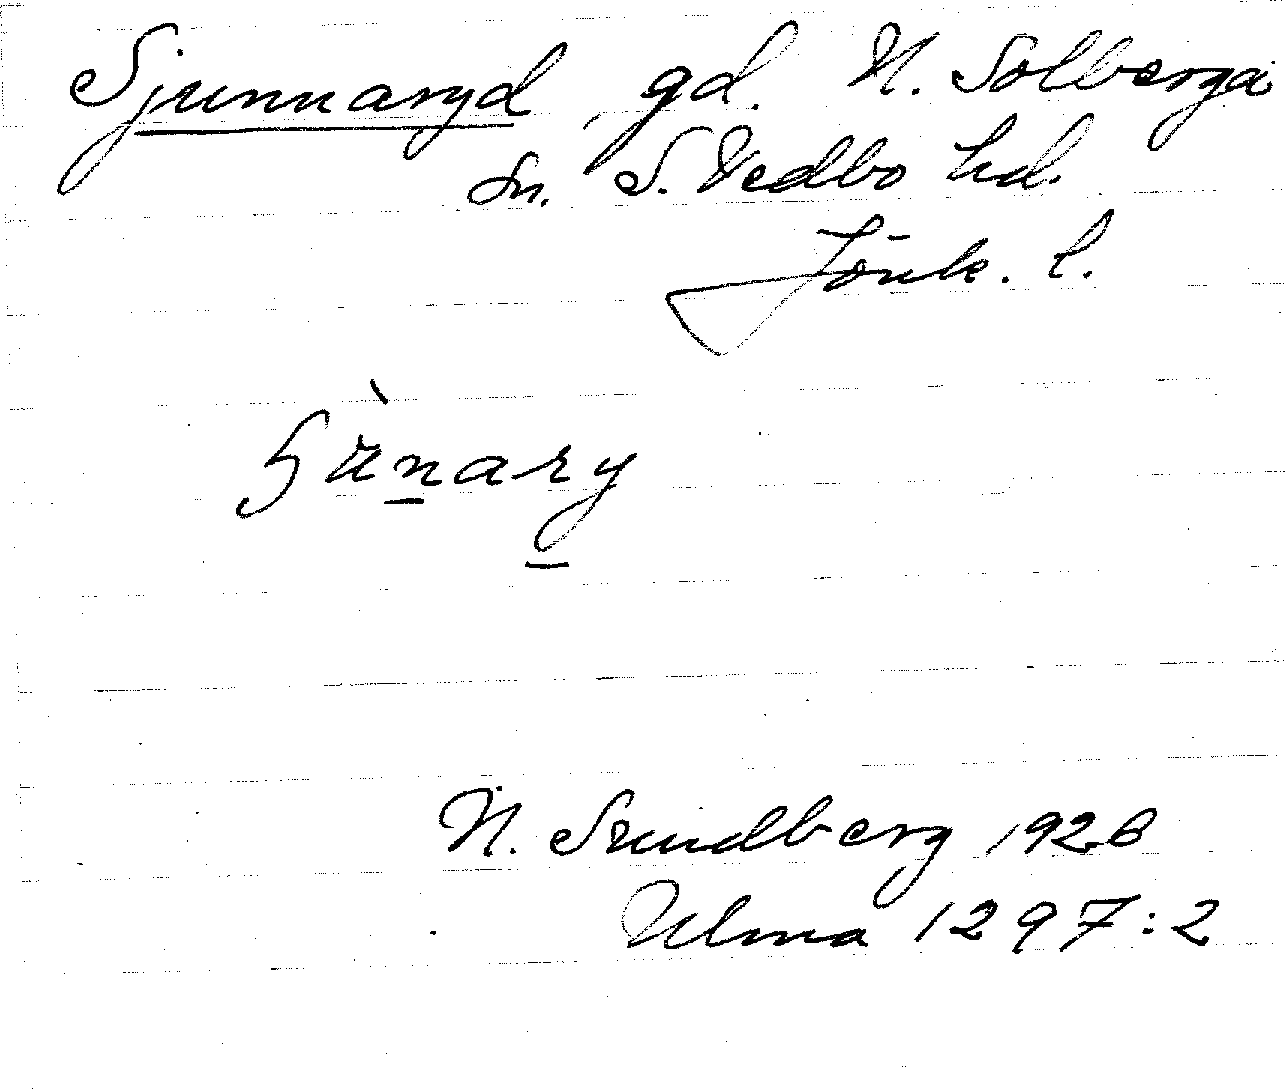 Sjunnaryd, gd. N. Solberga
sn. S. Vedbo hd.
Jönk. l.
N. Sundberg 1926
Ulma 1297:2